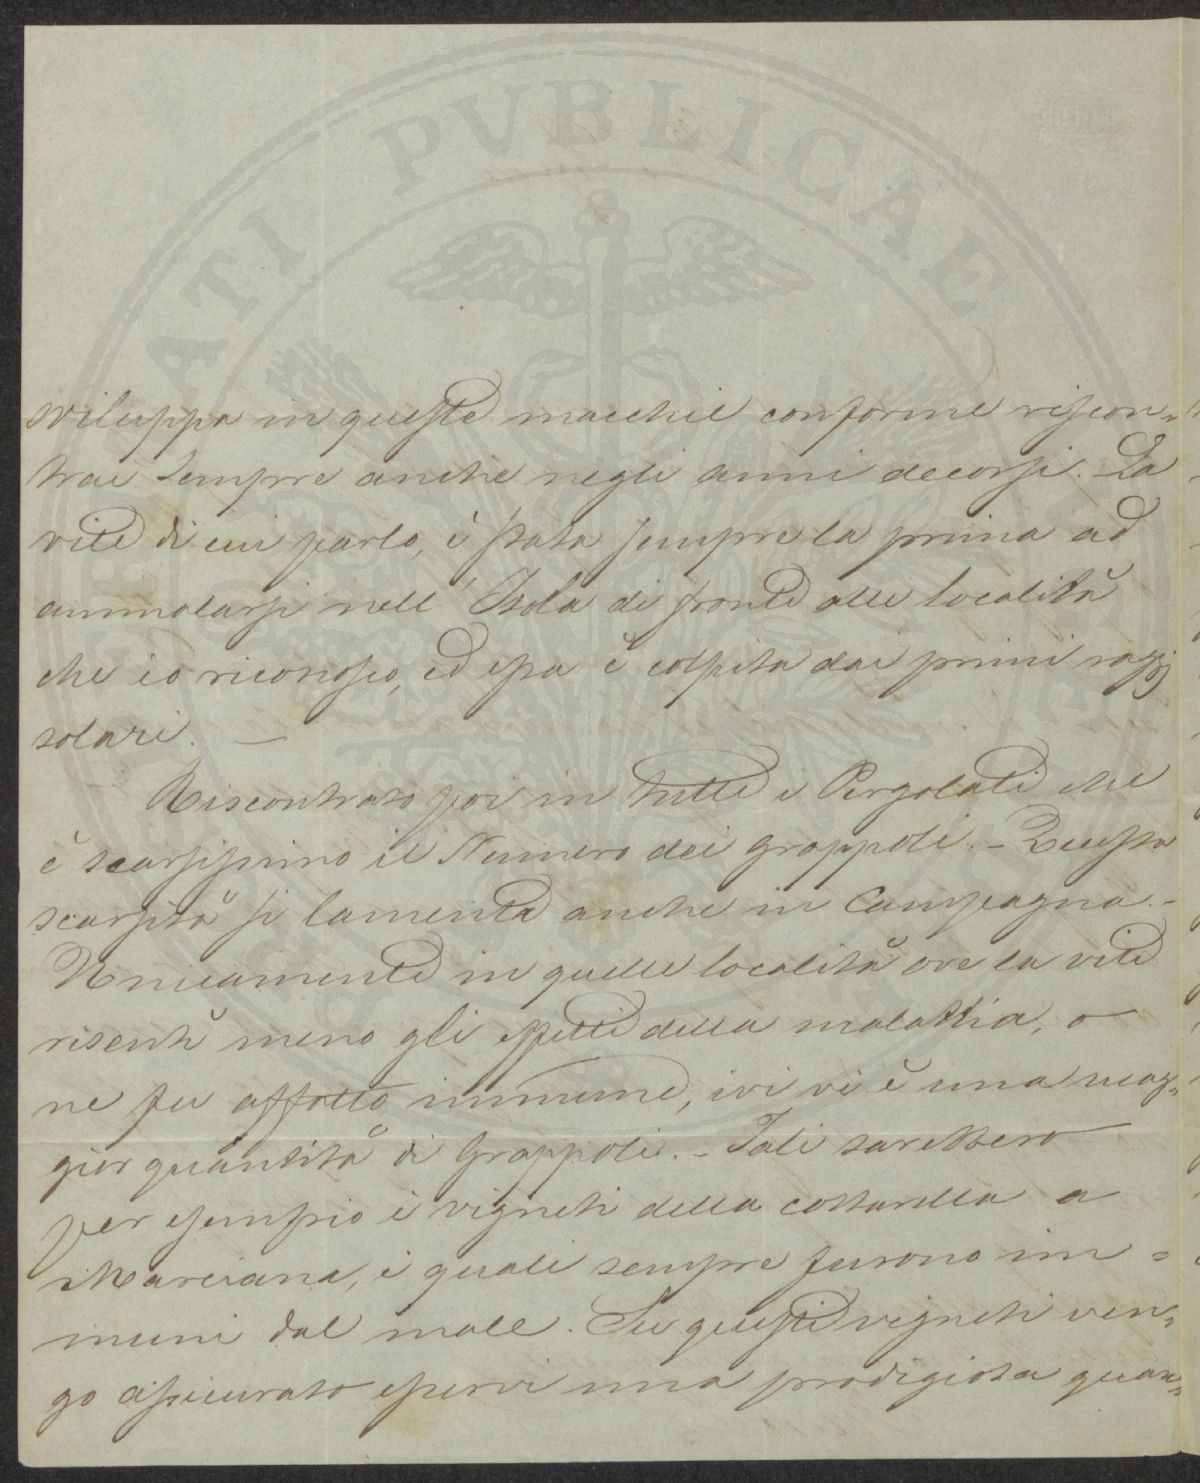 PVBLICAE
sviluppa in queste macchie conforme riscon=
trai sempre anche negli anni decorsi. La
vite di cui parlo, è stata sempre la prima ad
ammalarsi nell'Isola di fronte alle località
che io riconosco, ed essa è colpita dai primi raggi
solari. —
Riscontrato poi in tutti i Pergolati che
è scarsissimo il Numero dei grappoli. – Questa
scarsità si lamenta anche in Campagna. –
Unicamente in quelle località ove la vite
risentì meno gli effetti della malattia, o
ne fu affatto immune, ivi vi è una mag=
gior quantità di Grappoli. – Tali sarebbero
per esempio i vigneti della costarella a
Marciana, i quali sempre furono im=
muni dal male. Su questi vigneti ven=
go assicurato esservi una prodigiosa quan=